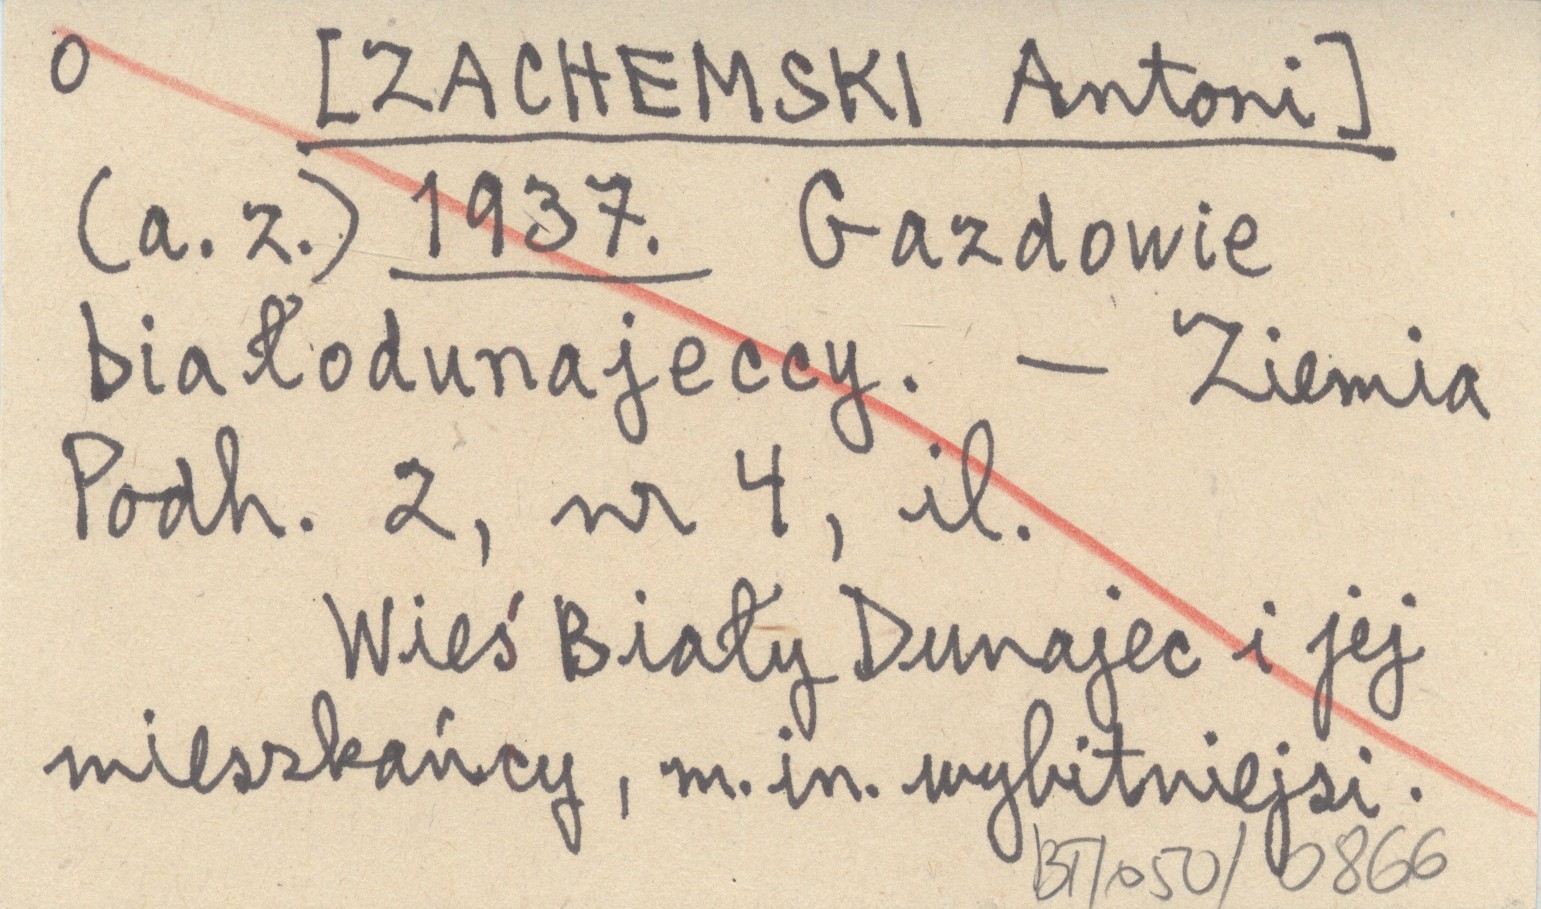 o [ZACHEMSKI Antoni]
(a. z.) 1937. Gazdowie
białodunajeccy. — Ziemia
Podh. 2, nr 4, il.
Wieś Biały Dunajec i jej
mieszkańcy, m. in. wybitniejsi.
BT/050/0866